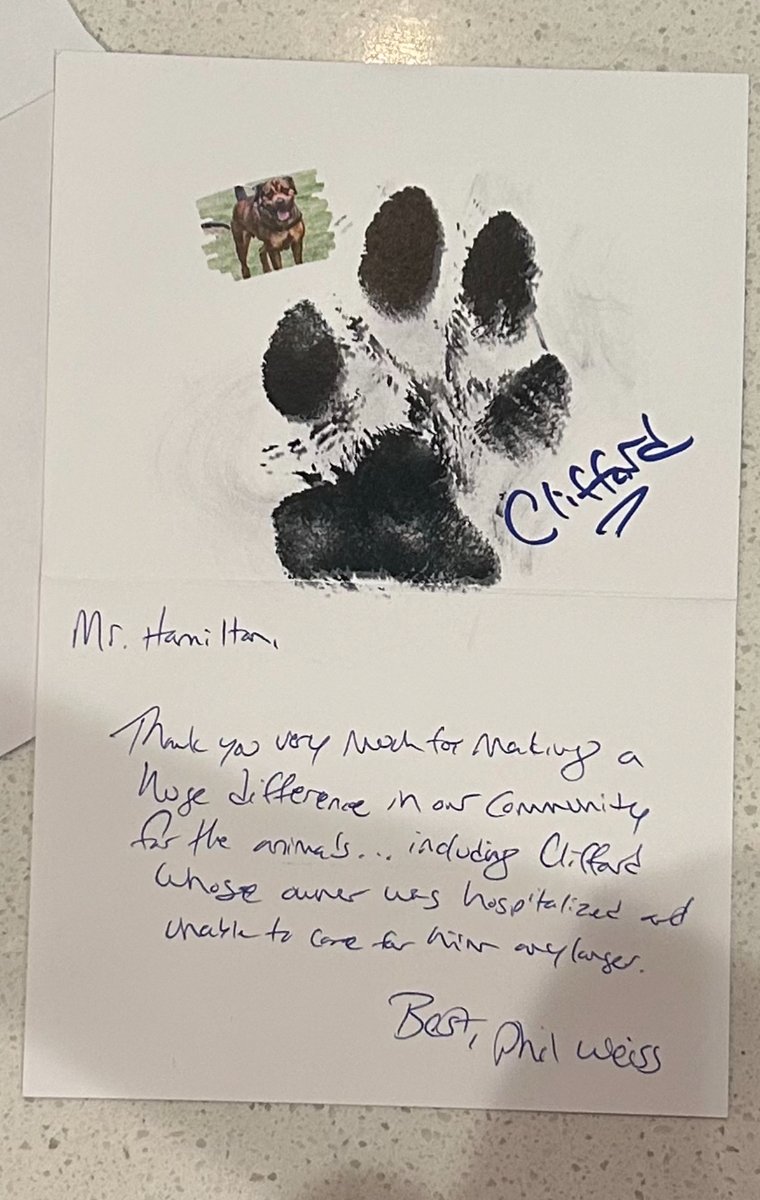 Clifford
Mr. Hamilton,
Thank you very much for making a
huge difference in our community
for the animals... including Clifford
whose owner was hospitalized and
unable to care for him any longer.
Best, Phil Weiss